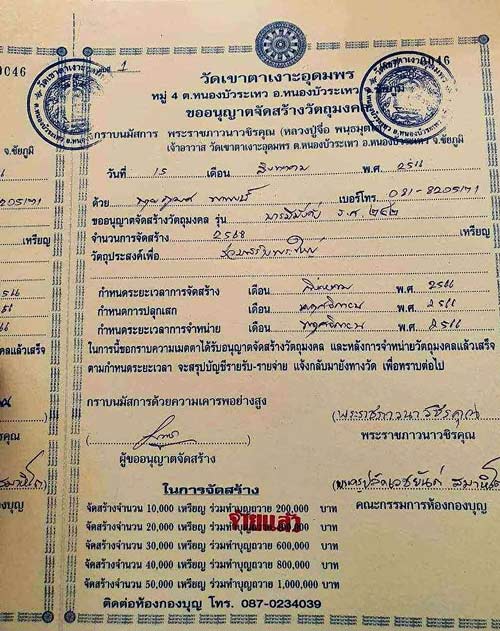 0046
0046
1
วัดเขาตาเงาะอุดมพร
หมู่ 4 ต.หนองบัวระเหว อ.หนองบัวระเหว จ.ชัยภูมิ
ขออนุญาตจัดสร้างวัตถุมงคล
กราบนมัสการ พระราชภาวนาวชิรคุณ (หลวงปู่จื่อ พนฺธมุตฺโต)
เจ้าอาวาส วัดเขาตาเงาะอุดมพร ต.หนองบัวระเหว อ.หนองบัวระเหว จ.ชัยภูมิ
วันที่ 15 เดือน สิงหาคม พ.ศ. 2566
ด้วย เบอร์โทร. 081-8205171
ขออนุญาตจัดสร้างวัตถุมงคล รุ่น
จำนวนการจัดสร้าง 2568 เหรียญ
วัตถุประสงค์เพื่อ
กำหนดระยะเวลาการจัดสร้าง เดือน สิงหาคม พ.ศ. 2566
กำหนดการปลุกเสก เดือน พฤศจิกายน พ.ศ. 2566
กำหนดระยะเวลาการจำหน่าย เดือน พฤศจิกายน พ.ศ. 2566
ในการนี้ขอกราบความเมตตาได้รับอนุญาตจัดสร้างวัตถุมงคล และหลังการจำหน่ายวัตถุมงคลแล้วเสร็จ
ตามกำหนดระยะเวลา จะสรุปบัญชีรายรับ-รายจ่าย แจ้งกลับมายังทางวัด เพื่อทราบต่อไป
กราบนมัสการด้วยความเคารพอย่างสูง
(พระราชภาวนาวชิรคุณ)
ผู้ขออนุญาตจัดสร้าง
พระราชภาวนาวชิรคุณ
คณะกรรมการห้องกองบุญ
ในการจัดสร้าง
จัดสร้างจำนวน 10,000 เหรียญ ร่วมทำบุญถวาย 200,000 บาท
จ่ายแล้ว
จัดสร้างจำนวน 20,000 เหรียญ ร่วมทำบุญถวาย บาท
จัดสร้างจำนวน 30,000 เหรียญ ร่วมทำบุญถวาย 600,000 บาท
จัดสร้างจำนวน 40,000 เหรียญ ร่วมทำบุญถวาย 800,000 บาท
จัดสร้างจำนวน 50,000 เหรียญ ร่วมทำบุญถวาย 1,000,000 บาท
ติดต่อห้องกองบุญ โทร. 087-0234039